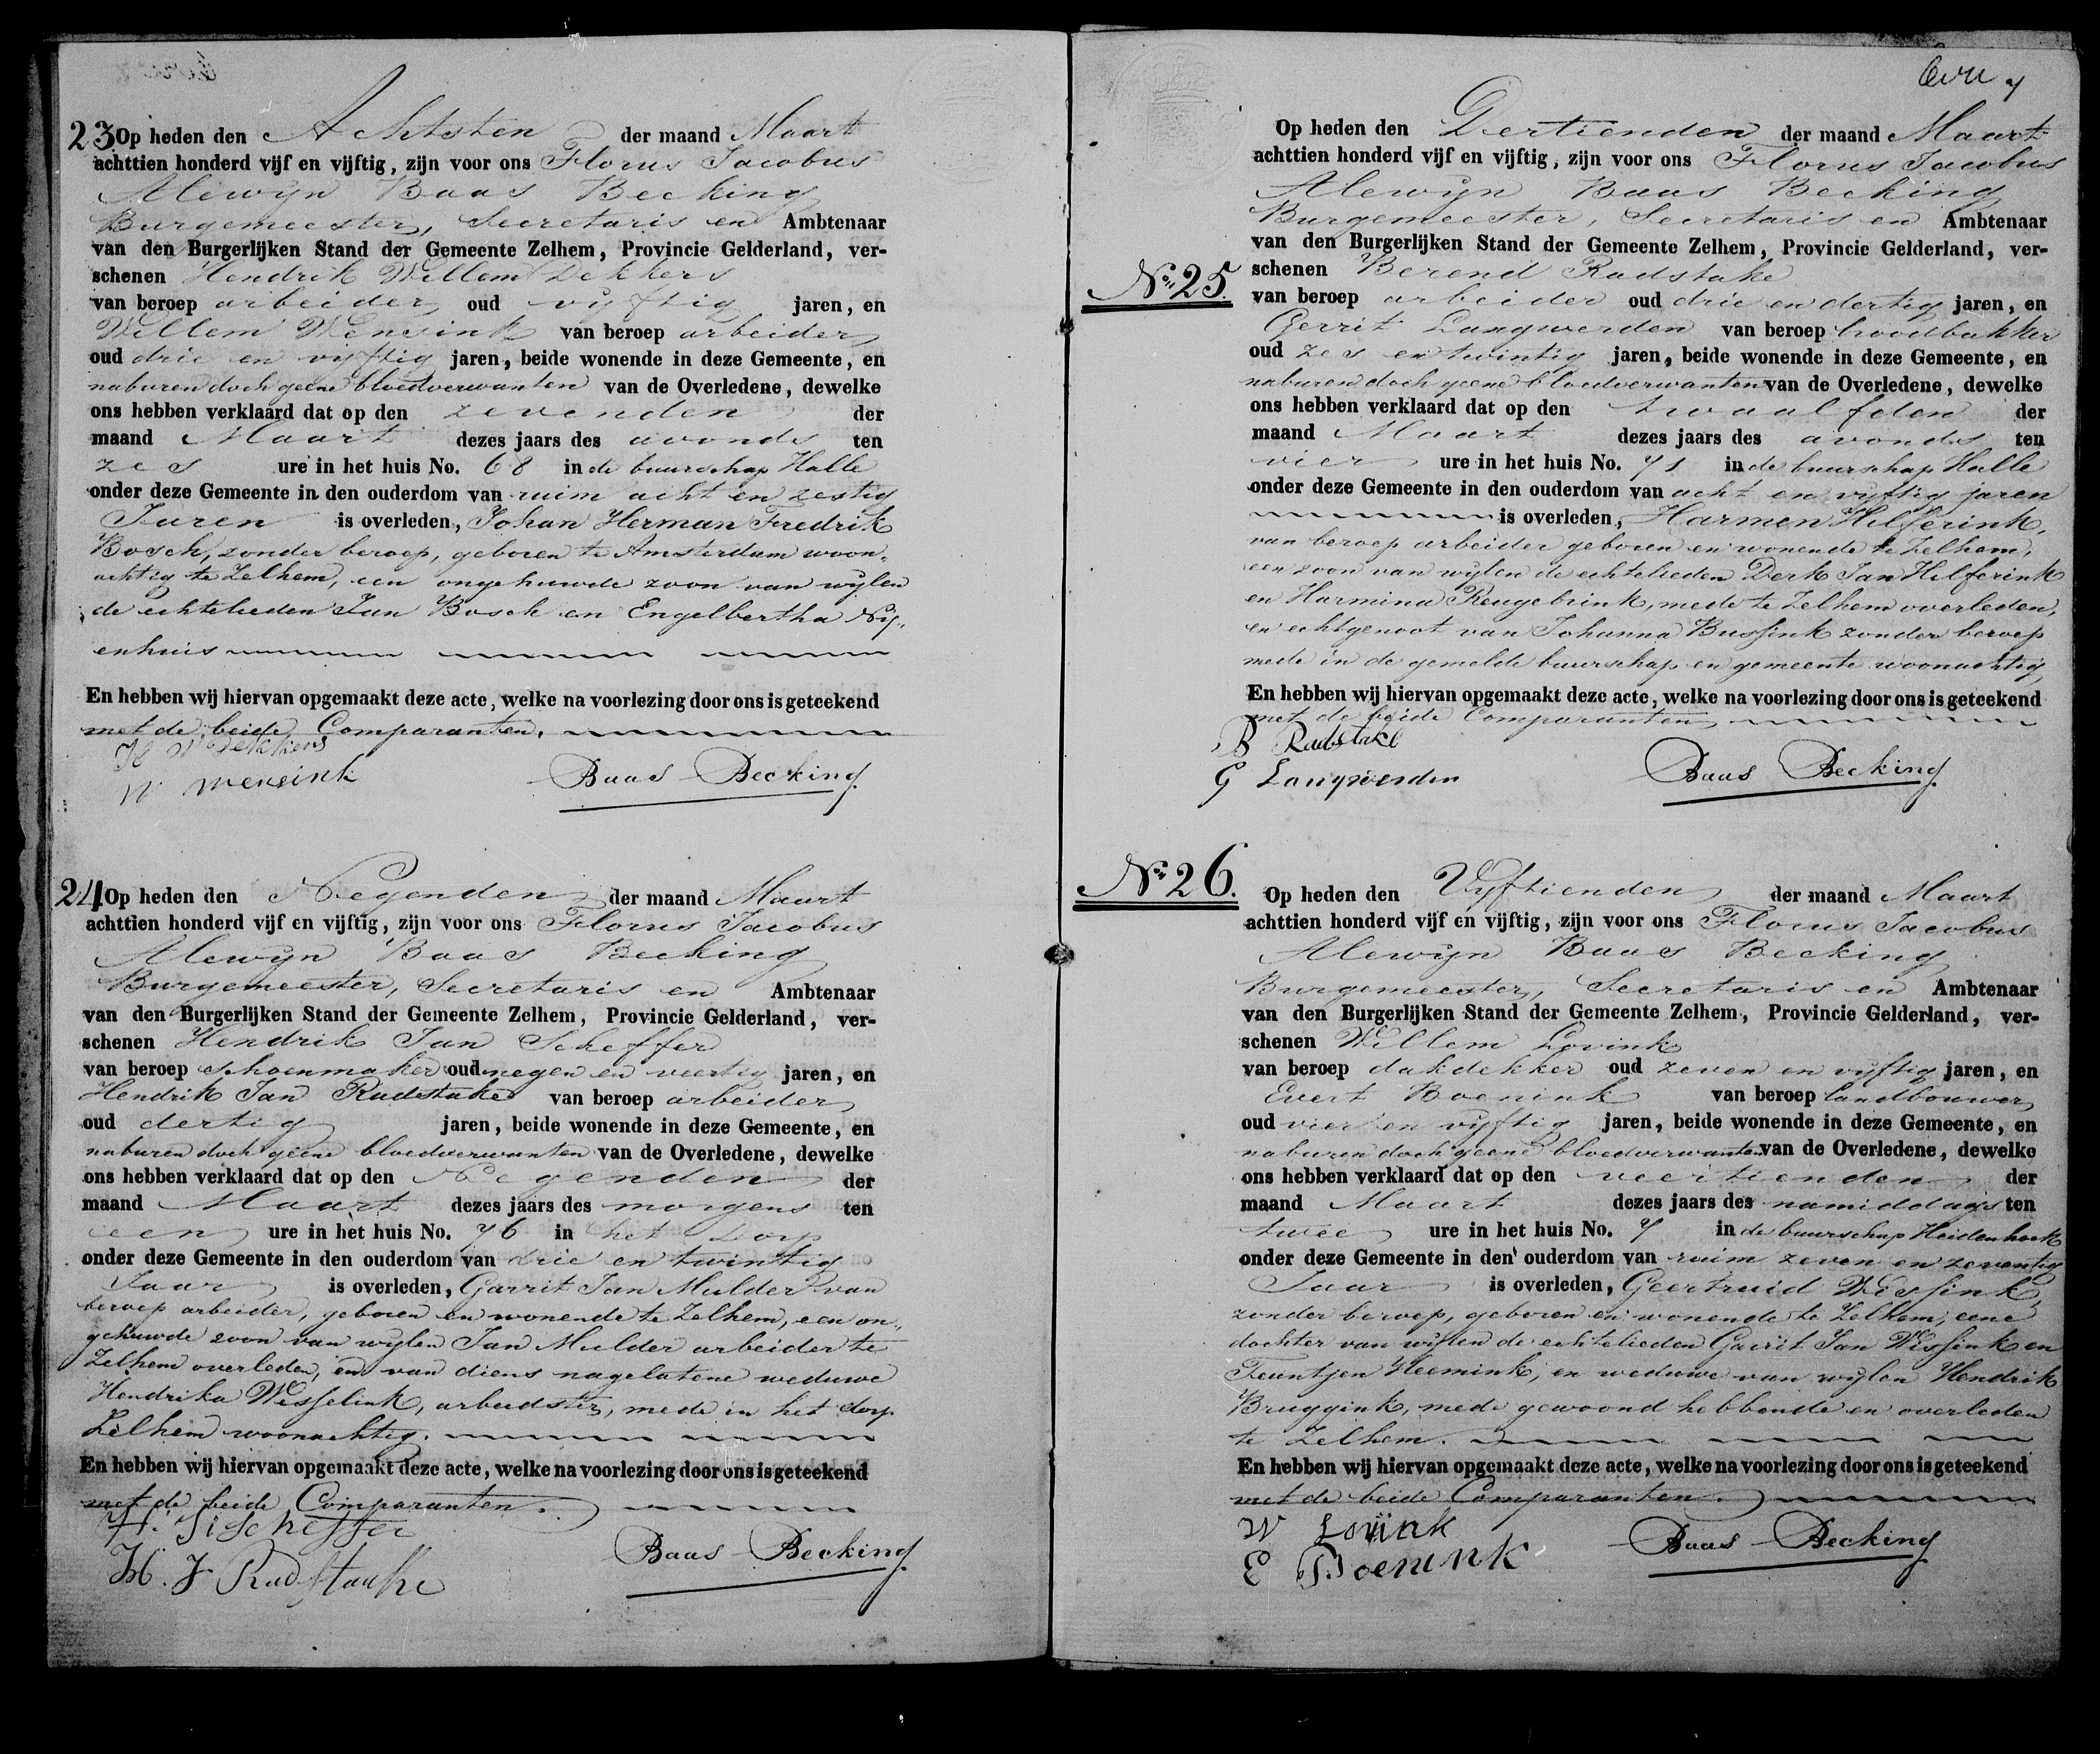 23 Op heden den Achtsten der maand Maart
achttien honderd vijf en vijftig, zijn voor ons Florus Jacobus
Alewijn Baas Becking
Burgemeester, Secretaris en Ambtenaar
van den Burgerlijken Stand der Gemeente Zelhem, Provincie Gelderland, ver-
schenen Hendrik Willem Dekkers
van beroep arbeider oud vijftig jaren, en
Willem Wensink van beroep arbeider
oud drie en vijftig jaren, beide wonende in deze Gemeente, en
naburen doch geene bloedverwanten van de Overledene, dewelke
ons hebben verklaard dat op den zevenden der
maand Maart dezes jaars des avonds ten
zes ure in het huis No. 68 in de buurschap Halle
onder deze Gemeente in den ouderdom van ruim acht en zestig
Jaren is overleden, Johan Herman Fredrik
Bosch, zonder beroep, geboren te Amsterdam woon-
achtig te Zelhem, een ongehuwde zoon van wijlen
de echtelieden Jan Bosch en Engelbertha Nij-
enhuis
En hebben wij hiervan opgemaakt deze acte, welke na voorlezing door ons is geteekend
met de beide Comparanten.
H W Dekkers
W Wensink Baas Becking
24 Op heden den Negenden der maand Maart
achttien honderd vijf en vijftig, zijn voor ons Florus Jacobus
Alewijn Baas Becking
Burgemeester, Secretaris en Ambtenaar
van den Burgerlijken Stand der Gemeente Zelhem, Provincie Gelderland, ver-
schenen Hendrik Jan Scheffer
van beroep schoenmaker oud negen en veertig jaren, en
Hendrik Jan Radstake van beroep arbeider
oud dertig jaren, beide wonende in deze Gemeente, en
naburen doch geene bloedverwanten van de Overledene, dewelke
ons hebben verklaard dat op den Negenden der
maand Maart dezes jaars des morgens ten
een ure in het huis No. 76 in het Dorp
onder deze Gemeente in den ouderdom van drie en twintig
Jaar is overleden, Garrit Jan Mulder van
beroep arbeider, geboren en wonende te Zelhem, een on-
gehuwde zoon van wijlen Jan Mulder arbeider te
Zelhem overleden, en van diens nagelatene weduwe
Hendrika Wesselink, arbeidster, mede in het dorp
Zelhem woonachtig.
En hebben wij hiervan opgemaakt deze acte, welke na voorlezing door ons is geteekend
met de beide Comparanten.
H. J Scheffer
H. J Radstaake Baas Becking
No 25. Op heden den Dertienden der maand Maart
achttien honderd vijf en vijftig, zijn voor ons Florus Jacobus
Alewijn Baas Becking
Burgemeester, Secretaris en Ambtenaar
van den Burgerlijken Stand der Gemeente Zelhem, Provincie Gelderland, ver-
schenen Berend Radstake
van beroep arbeider oud drie en dertig jaren, en
Gerrit Langwerden van beroep broodbakker
oud zes en twintig jaren, beide wonende in deze Gemeente, en
naburen doch geene bloedverwanten van de Overledene, dewelke
ons hebben verklaard dat op den twaalfden der
maand Maart dezes jaars des avonds ten
vier ure in het huis No. 71 in de buurschap Halle
onder deze Gemeente in den ouderdom van acht en vijftig jaren
is overleden, Harmen Hilferink,
van beroep arbeider geboren en wonende te Zelhem,
een zoon van wijlen de echtelieden Derk Jan Hilferink
en Harmina Reugebrink, mede te Zelhem overleden,
en echtgenoot van Johanna Bussink zonder beroep
mede in de gemelde buurschap en gemeente woonachtig
En hebben wij hiervan opgemaakt deze acte, welke na voorlezing door ons is geteekend
met de beide Comparanten
B Radstake
G Langwerden Baas Becking
No 26. Op heden den Vijftienden der maand Maart
achttien honderd vijf en vijftig, zijn voor ons Florus Jacobus
Alewijn Baas Becking
Burgemeester, Secretaris en Ambtenaar
van den Burgerlijken Stand der Gemeente Zelhem, Provincie Gelderland, ver-
schenen Willem Lovink
van beroep dakdekker oud zeven en vijftig jaren, en
Evert Boenink van beroep landbouwer
oud vier en vijftig jaren, beide wonende in deze Gemeente, en
naburen doch geene bloedverwanten van de Overledene, dewelke
ons hebben verklaard dat op den veertienden der
maand Maart dezes jaars des namiddags ten
twee ure in het huis No. 7 in de buurschap Heidenhoek
onder deze Gemeente in den ouderdom van ruim zeven en zeventig
Jaar is overleden, Geertruid Wissink,
zonder beroep, geboren en wonende te Zelhem, eene
dochter van wijlen de echtelieden Garrit Jan Wissink en
Teuntjen Heemink, en weduwe van wijlen Hendrik
Bruggink, mede gewoond hebbende en overleden
te Zelhem.
En hebben wij hiervan opgemaakt deze acte, welke na voorlezing door ons is geteekend
met de beide Comparanten.
W Lovink
E Boenink Baas Becking